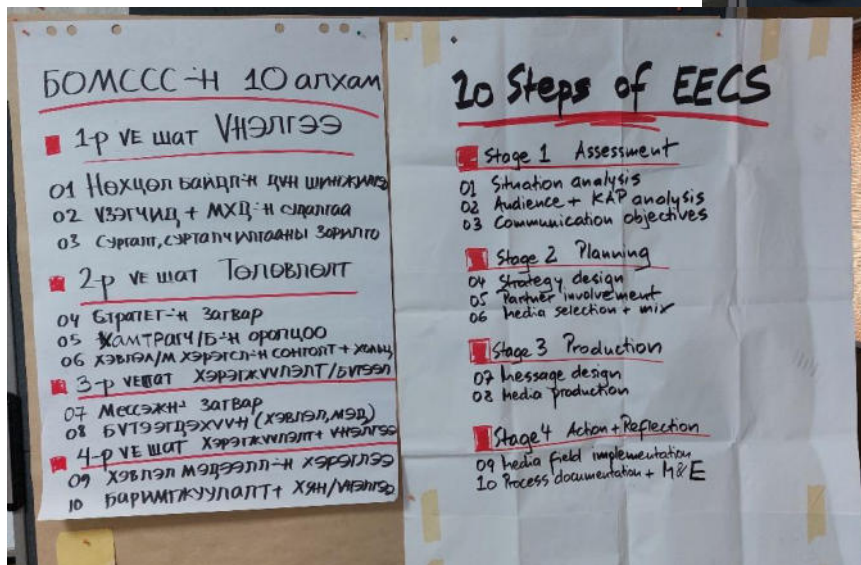 БОМССС-Н 10 алхам
1-р VЕ шат VНЭЛГЭЭ
01 Нөхцөл байдл-н дүн шинжилгээ
02 VЗЭГЧИД + МХД-н судалгаа
03 Сургалт, сурталчилгааны Зорилго
2-р VЕ шат Төлөвлөлт
04 Стратег-н Загвар
05 Хамтрагч/Б-н оролцоо
06 Хэвлэл/м хэрэгсл-н сонголт + холиц
3-р VЕ шат Хэрэгжүүлэлт/Бүтээл
07 Мессэжн Загвар
08 БVТЭЭГДЭХVVН (хэвлэл, мэд)
4-р VЕ шат Хэрэгжүүлэлт + VНЭЛГЭЭ
09 Хэвлэл мэдээлл-н хэрэглээ
10 Баримтжуулалт + Хян/VНЭЛГЭЭ
10 Steps of EECS
Stage 1 Assessment
01 Situation analysis
02 Audience + KAP analysis
03 Communication objectives
Stage 2 Planning
04 Strategy design
05 Partner involvement
06 Media selection + mix
Stage 3 Production
07 Message design
08 Media production
Stage 4 Action + Reflection
09 Media field implementation
10 Process documentation + M&E